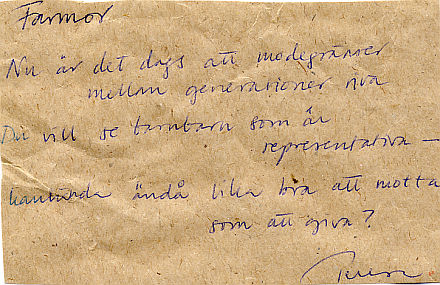 Farmor
Nu är det dags att modegränser
mellan generationer riva
Du vill se barnbarn som är
representativa —
kanhända ändå lika bra att motta
som att giva?